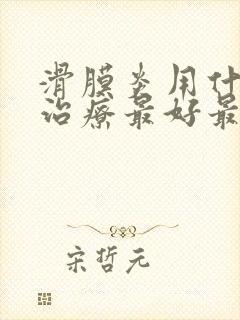 滑膜炎用什
治疗最好最
宋哲元